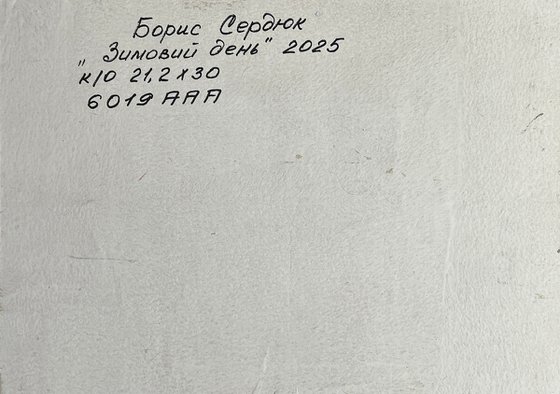 Борис Сердюк
„Зимовий день" 2025
к/о 21,2 x 30
6019 AAA